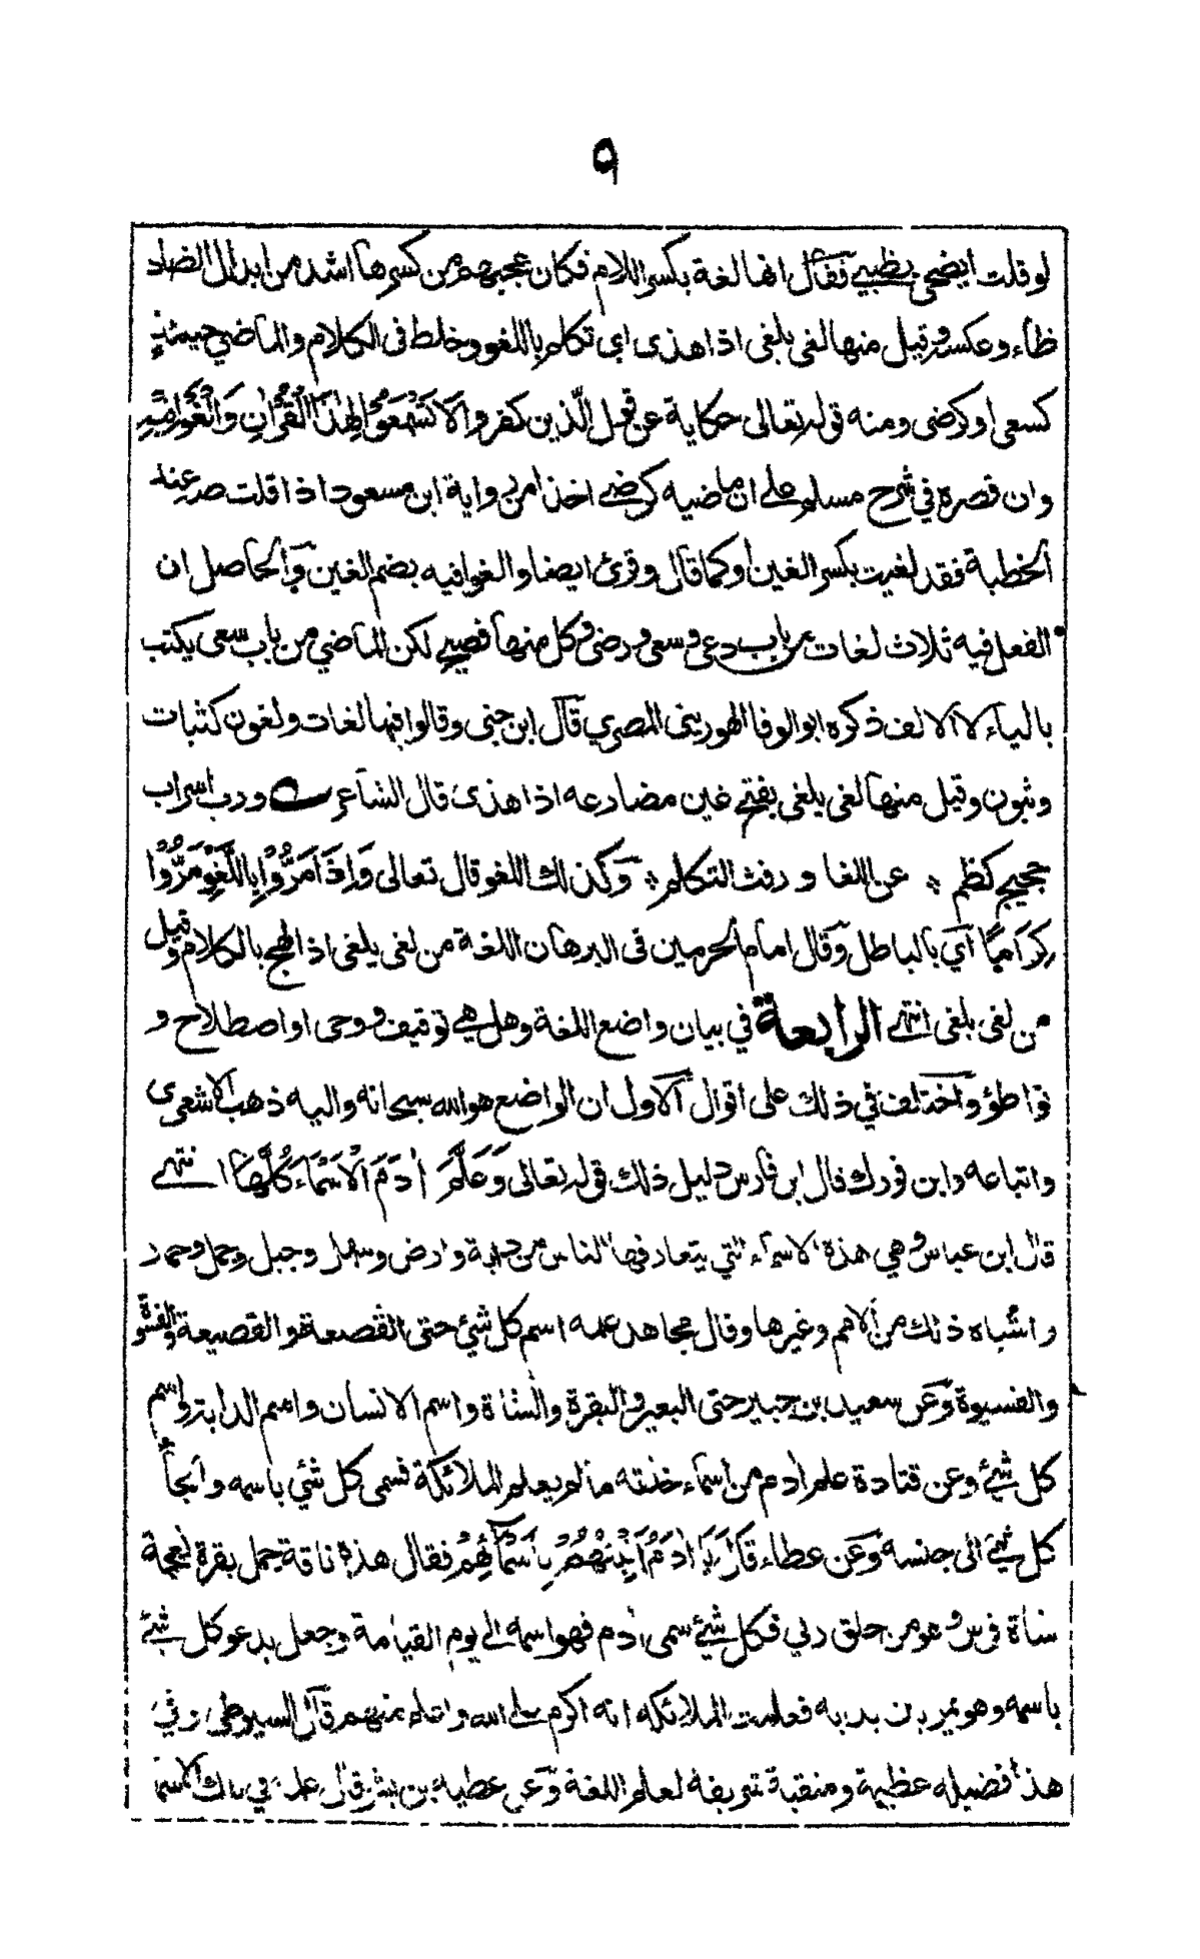 ٩
لو قلت ايضحى بظبي فقال انها لغة بكسر اللام فكان عجبهم من كسرها اشد من ابدال الضاد
ظاء وعكسه وقيل منها لغى يلغى اذا هذى اي تكلم باللغو وخلط فى الكلام والماضي حينئذٍ
كسعى او كرضى ومنه قوله تعالى حكاية عن قول الَّذين كفروا لَا تَسْمَعُوْا لِهٰذَا الْقُرْاٰنِ وَالْغَوْا فِيْهِ
وان قصره في شرح مسلم على ان ماضيه كرضي اخذا من رواية ابن مسعود اذا قلت صه عند
الخطبة فقد لغيت بكسر الغين او كما قال وقرئ ايضا والغوا فيه بضم الغين والحاصل ان
الفعل فيه ثلاث لغات من باب دعى وسعى ورضى وكل منها فصيح لكن الماضي من باب سعى يكتب
بالياء لا الالف ذكره ابو الوفا الهورينى المصري قال ابن جنى وقالوا فيها لغات ولغون كثبات
وثبون وقيل منها لغى يلغى بفتح غين مضارعه اذا هذى قال الشاعر ورب اسراب
حجيج كظم ؞ عن اللغا ورفث التكلم ؞ وكذلك اللغو قال تعالى وَاِذَا مَرُّوْا بِاللَّغْوِ مَرُّوْا
كِرَامًا اي بالباطل وقال امام الحرمين فى البرهان اللغة من لغى يلغى اذا لهج بالكلام وقيل
من لغى يلغى انتهى الرابعة في بيان واضع اللغة وهل هي توقيف ووحى او اصطلاح و
تواطؤ واختلف في ذلك على اقوال الاول ان الواضع هو الله سبحانه واليه ذهب الاشعرى
واتباعه وابن فورك قال ابن فارس دليل ذلك قوله تعالى وَعَلَّمَ اٰدَمَ الْاَسْمَاءَ كُلَّهَا انتهى
قال ابن عباس وهي هذه الاسماء التي يتعارفها الناس من دابة وارض وسهل وجبل وجمل وحمار
واشباه ذلك من الامم وغيرها وقال مجاهد علمه اسم كل شئ حتى القصعة والقصيعة والفسوة
والفسيوة وعن سعيد بن جبير حتى البعير والبقرة والشاة واسم الانسان واسم الدابة واسم
كل شئ وعن قتادة علم اٰدم من اسماء خلقه ما لم يعلم الملائكة فسمى كل شئ باسمه والجأ
كل شئ الى جنسه وعن عطاء قَالَ يَا اٰدَمُ اَنْبِئْهُمْ بِاَسْمَآئِهِمْ فقال هذه ناقة جمل بقرة نعجة
شاة فرس وهو من خلق ربي فكل شئ سمى اٰدم فهو اسمه الى يوم القيامة وجعل يدعو كل شئ
باسمه وهو يمر بين يديه فعلمت الملائكة انه اكرم على الله واعلم منهم قال السيوطي وفي
هذا فضيلة عظيمة ومنقبة شريفة لعلم اللغة وعن عطية بن بشر قال علمه في تلك الاسما